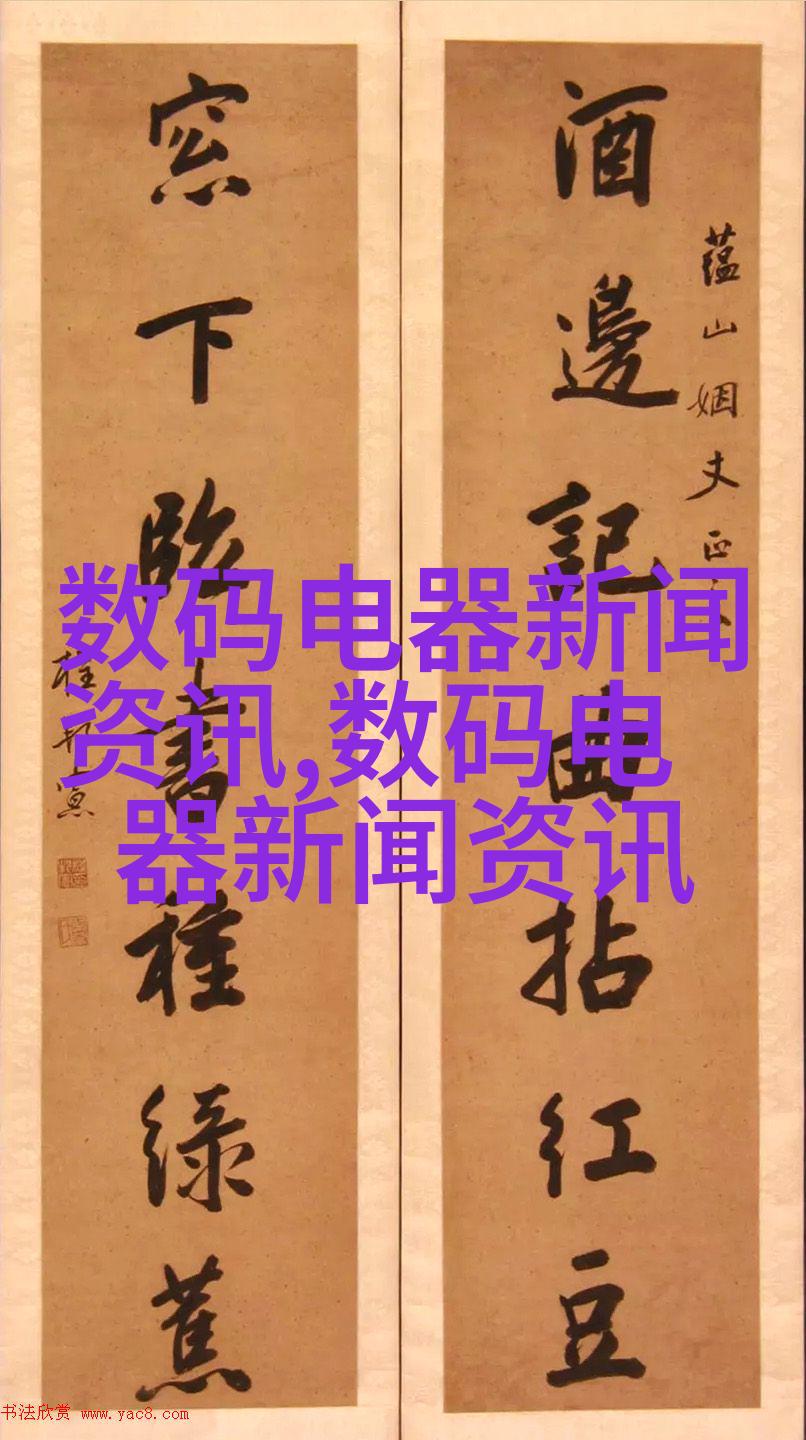 蘊山姻丈正
酒邊記曲拈紅豆
窓下臨書種綠蕉
数码电器新闻
资讯,数码电
器新闻资讯
书法欣赏 www.yac8.com